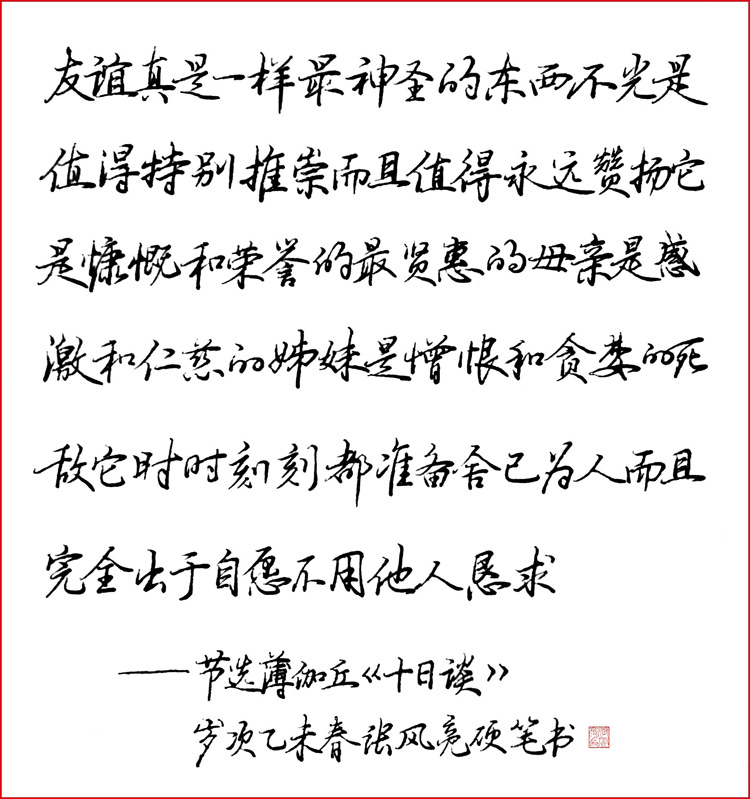 友谊真是一样最神圣的东西不光是
值得特别推崇而且值得永远赞扬它
是慷慨和荣誉的最贤惠的母亲是感
激和仁慈的姊妹是憎恨和贪婪的死
敌它时时刻刻都准备舍己为人而且
完全出于自愿不用他人恳求
——节选薄伽丘《十日谈》
岁次乙未春张风亮硬笔书